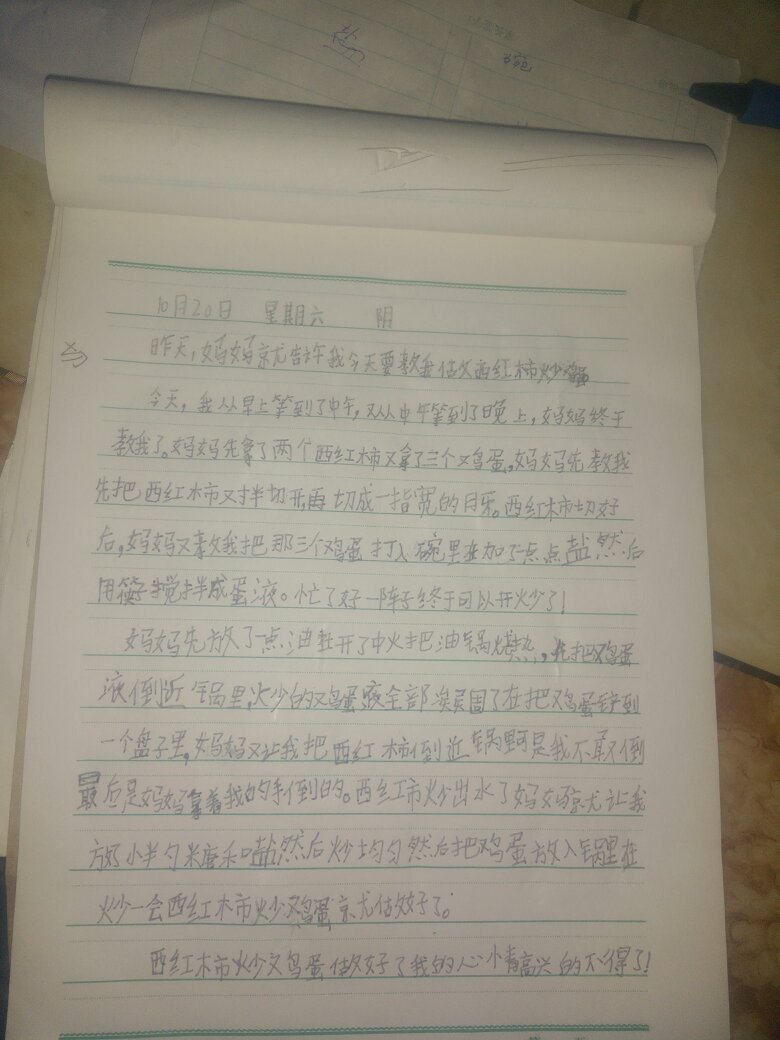 10月20日 星期六 阴
昨天,妈妈就告许我今天要教我做西红柿炒鸡蛋
今天,我从早上等到了中午,又从中午等到了晚上,妈妈终于
教我了。妈妈先拿了两个西红柿又拿了三个鸡蛋,妈妈先教我
先把西红柿对半切开再切成一指宽的月牙。西红柿切好
后,妈妈又教我把那三个鸡蛋打入碗里在加了一点点盐然后
用筷子搅拌成蛋液。忙了好一阵子终于可以开火少了!
妈妈先放了一点油在开了中火把油锅烧热,先把鸡蛋
液倒近锅里,炒的鸡蛋液全部凝固了在把鸡蛋铲到
一个盘子里,妈妈又让我把西红柿倒近锅里可是我不敢倒
最后是妈妈拿着我的手倒的。西红市炒出水了妈妈就让我
放小半勺米唐和盐然后炒均匀然后把鸡蛋放入锅里在
炒一会西红柿炒鸡蛋就做好了。
西红柿炒鸡蛋做好了我的心情高兴的不得了!